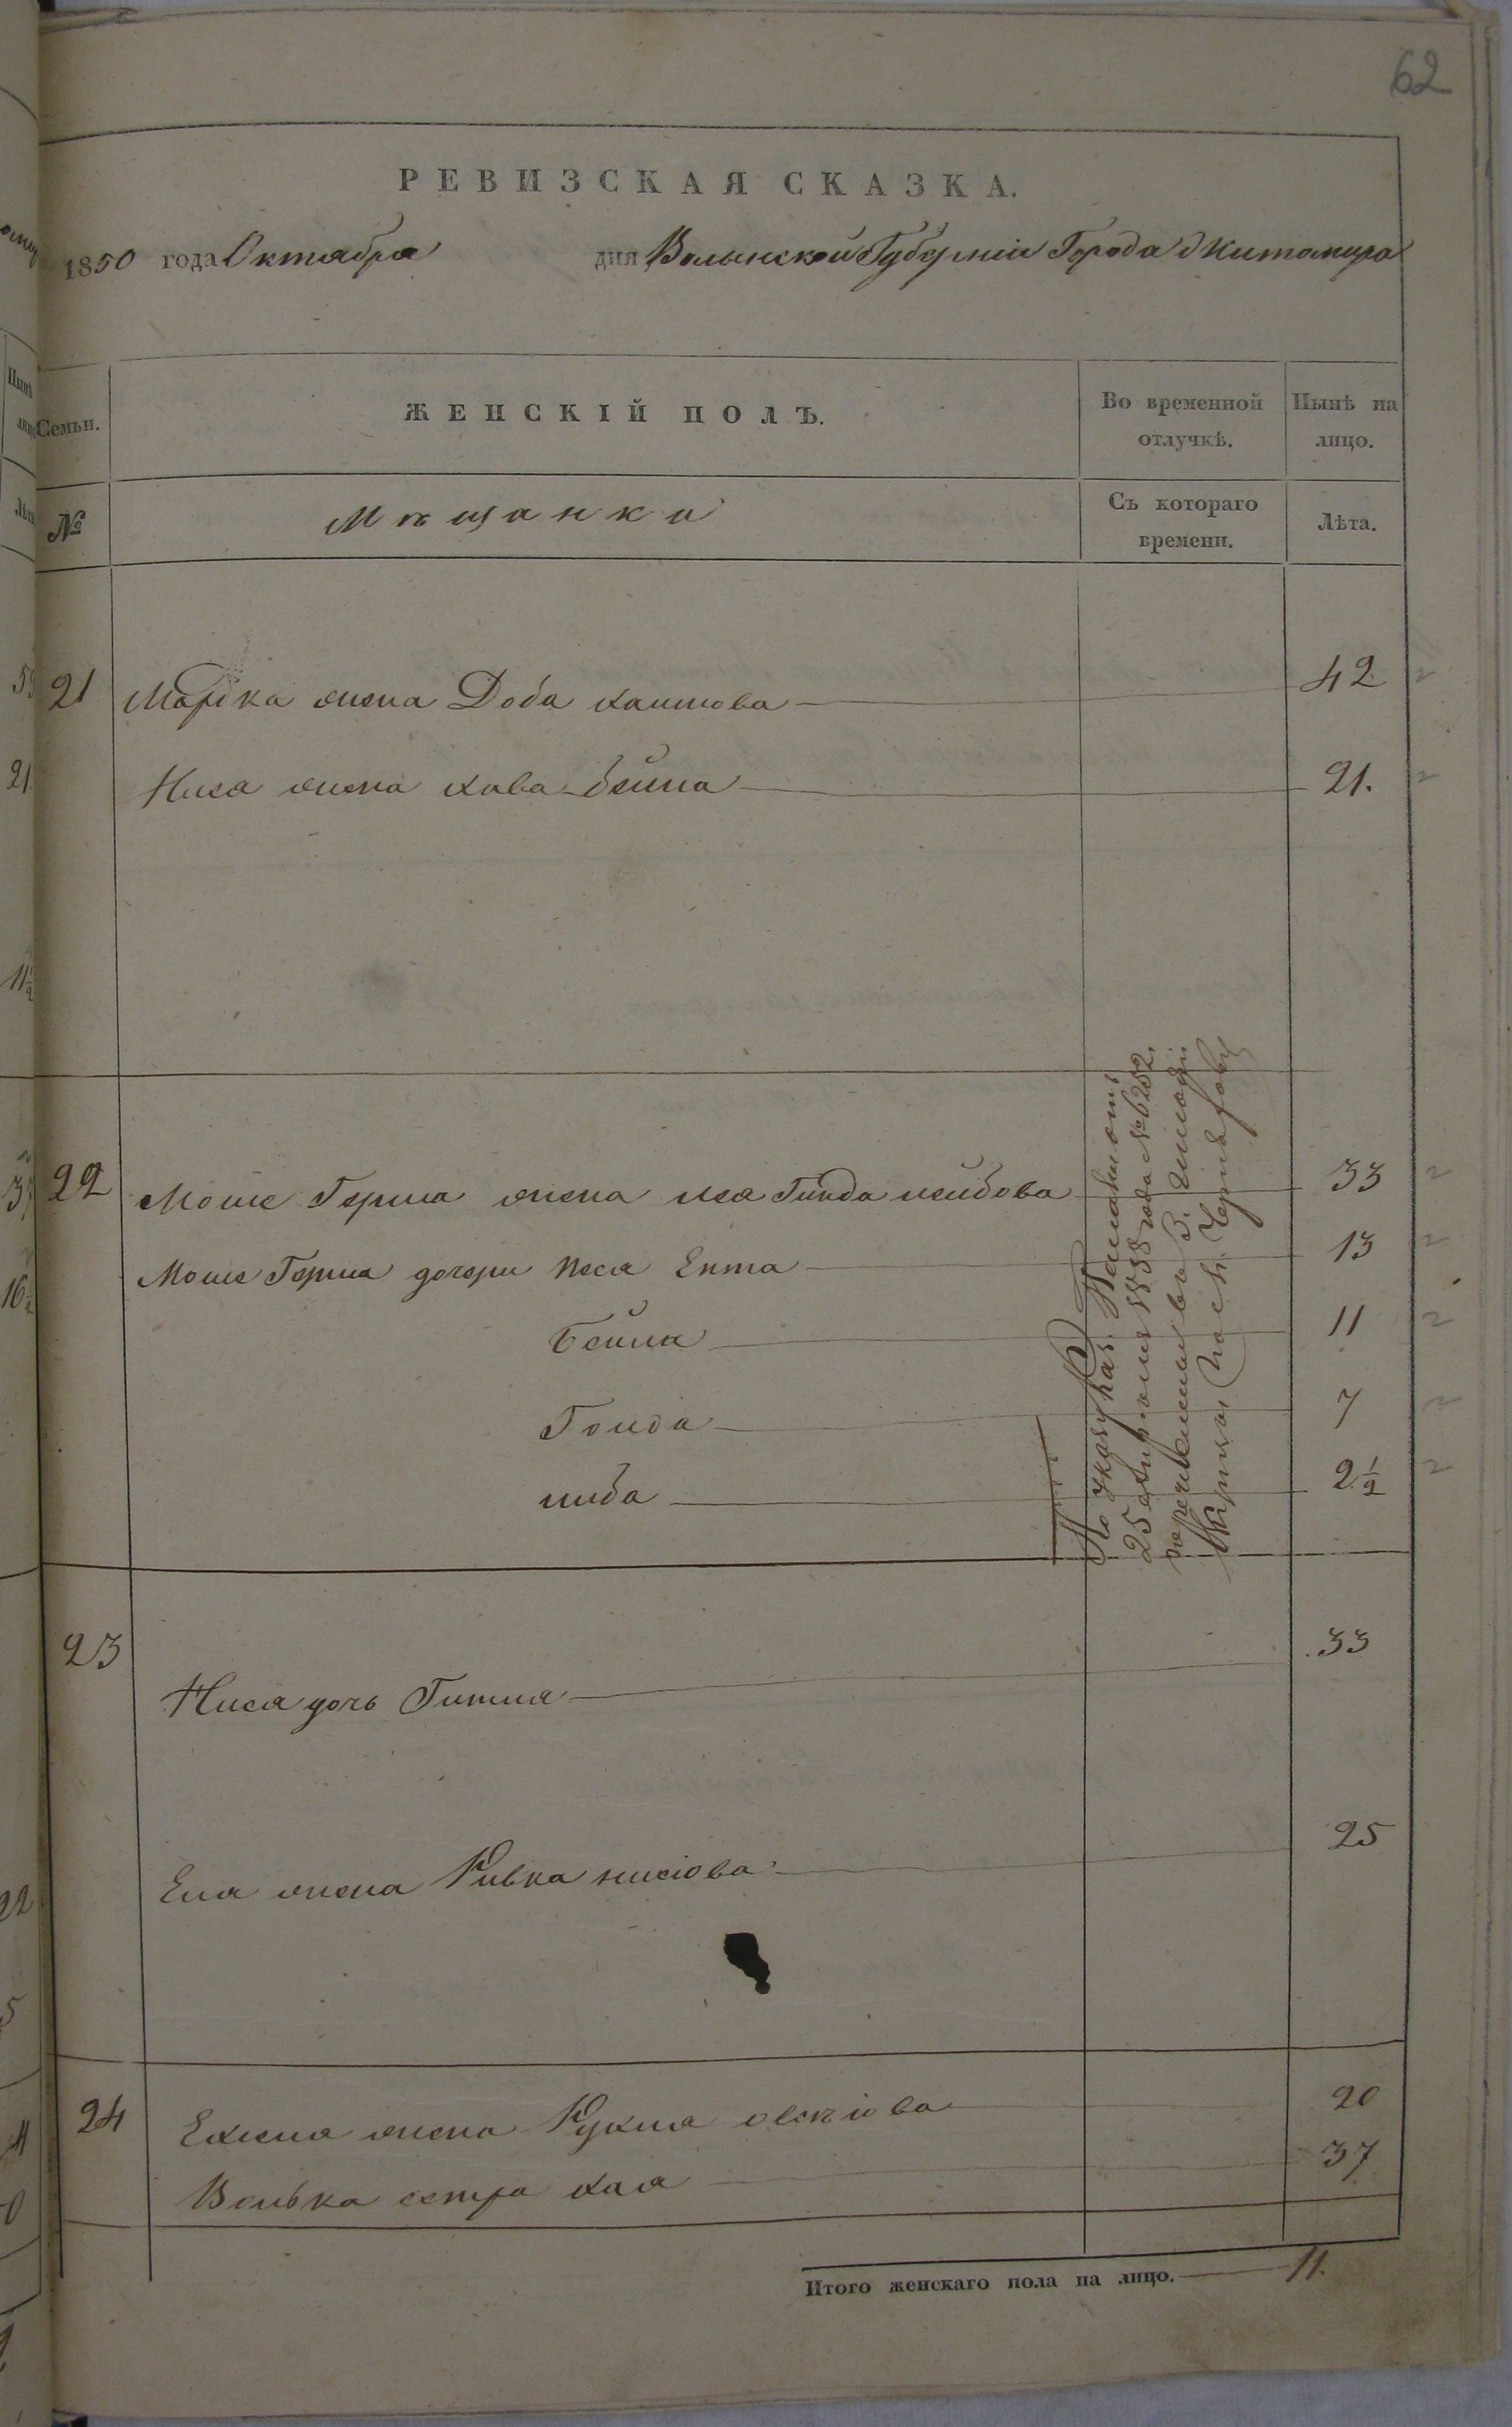 62
РЕВИЗСКАЯ СКАЗКА.
1850 года Октября дня Волынской Губернiи Города Житомира
Семьи. ЖЕНСКIЙ ПОЛЪ. Во временной отлучкѣ. Нынѣ на лицо.
№ Мѣщанки Съ котораго времени. Лѣта.
21 Марка жена Доба Хаимова 42
Нися жена Хава Бейла 21.
22 Моше Герша жена Лея Гинда Лейбова 33
Моше Герша дочери Песя Ента 13
Бейла 11
Голда 7
Либа 2 1/2
По указу Каз. Палаты отъ
25 1858 года № 6252.
перечислены въ
23 Нися дочь Гитля 33
Еля жена Ривка Нисiова 25
24 Ехиеля жена Рухля 20
Волька сестра Хая 37
Итого женскаго пола на лицо. 11.